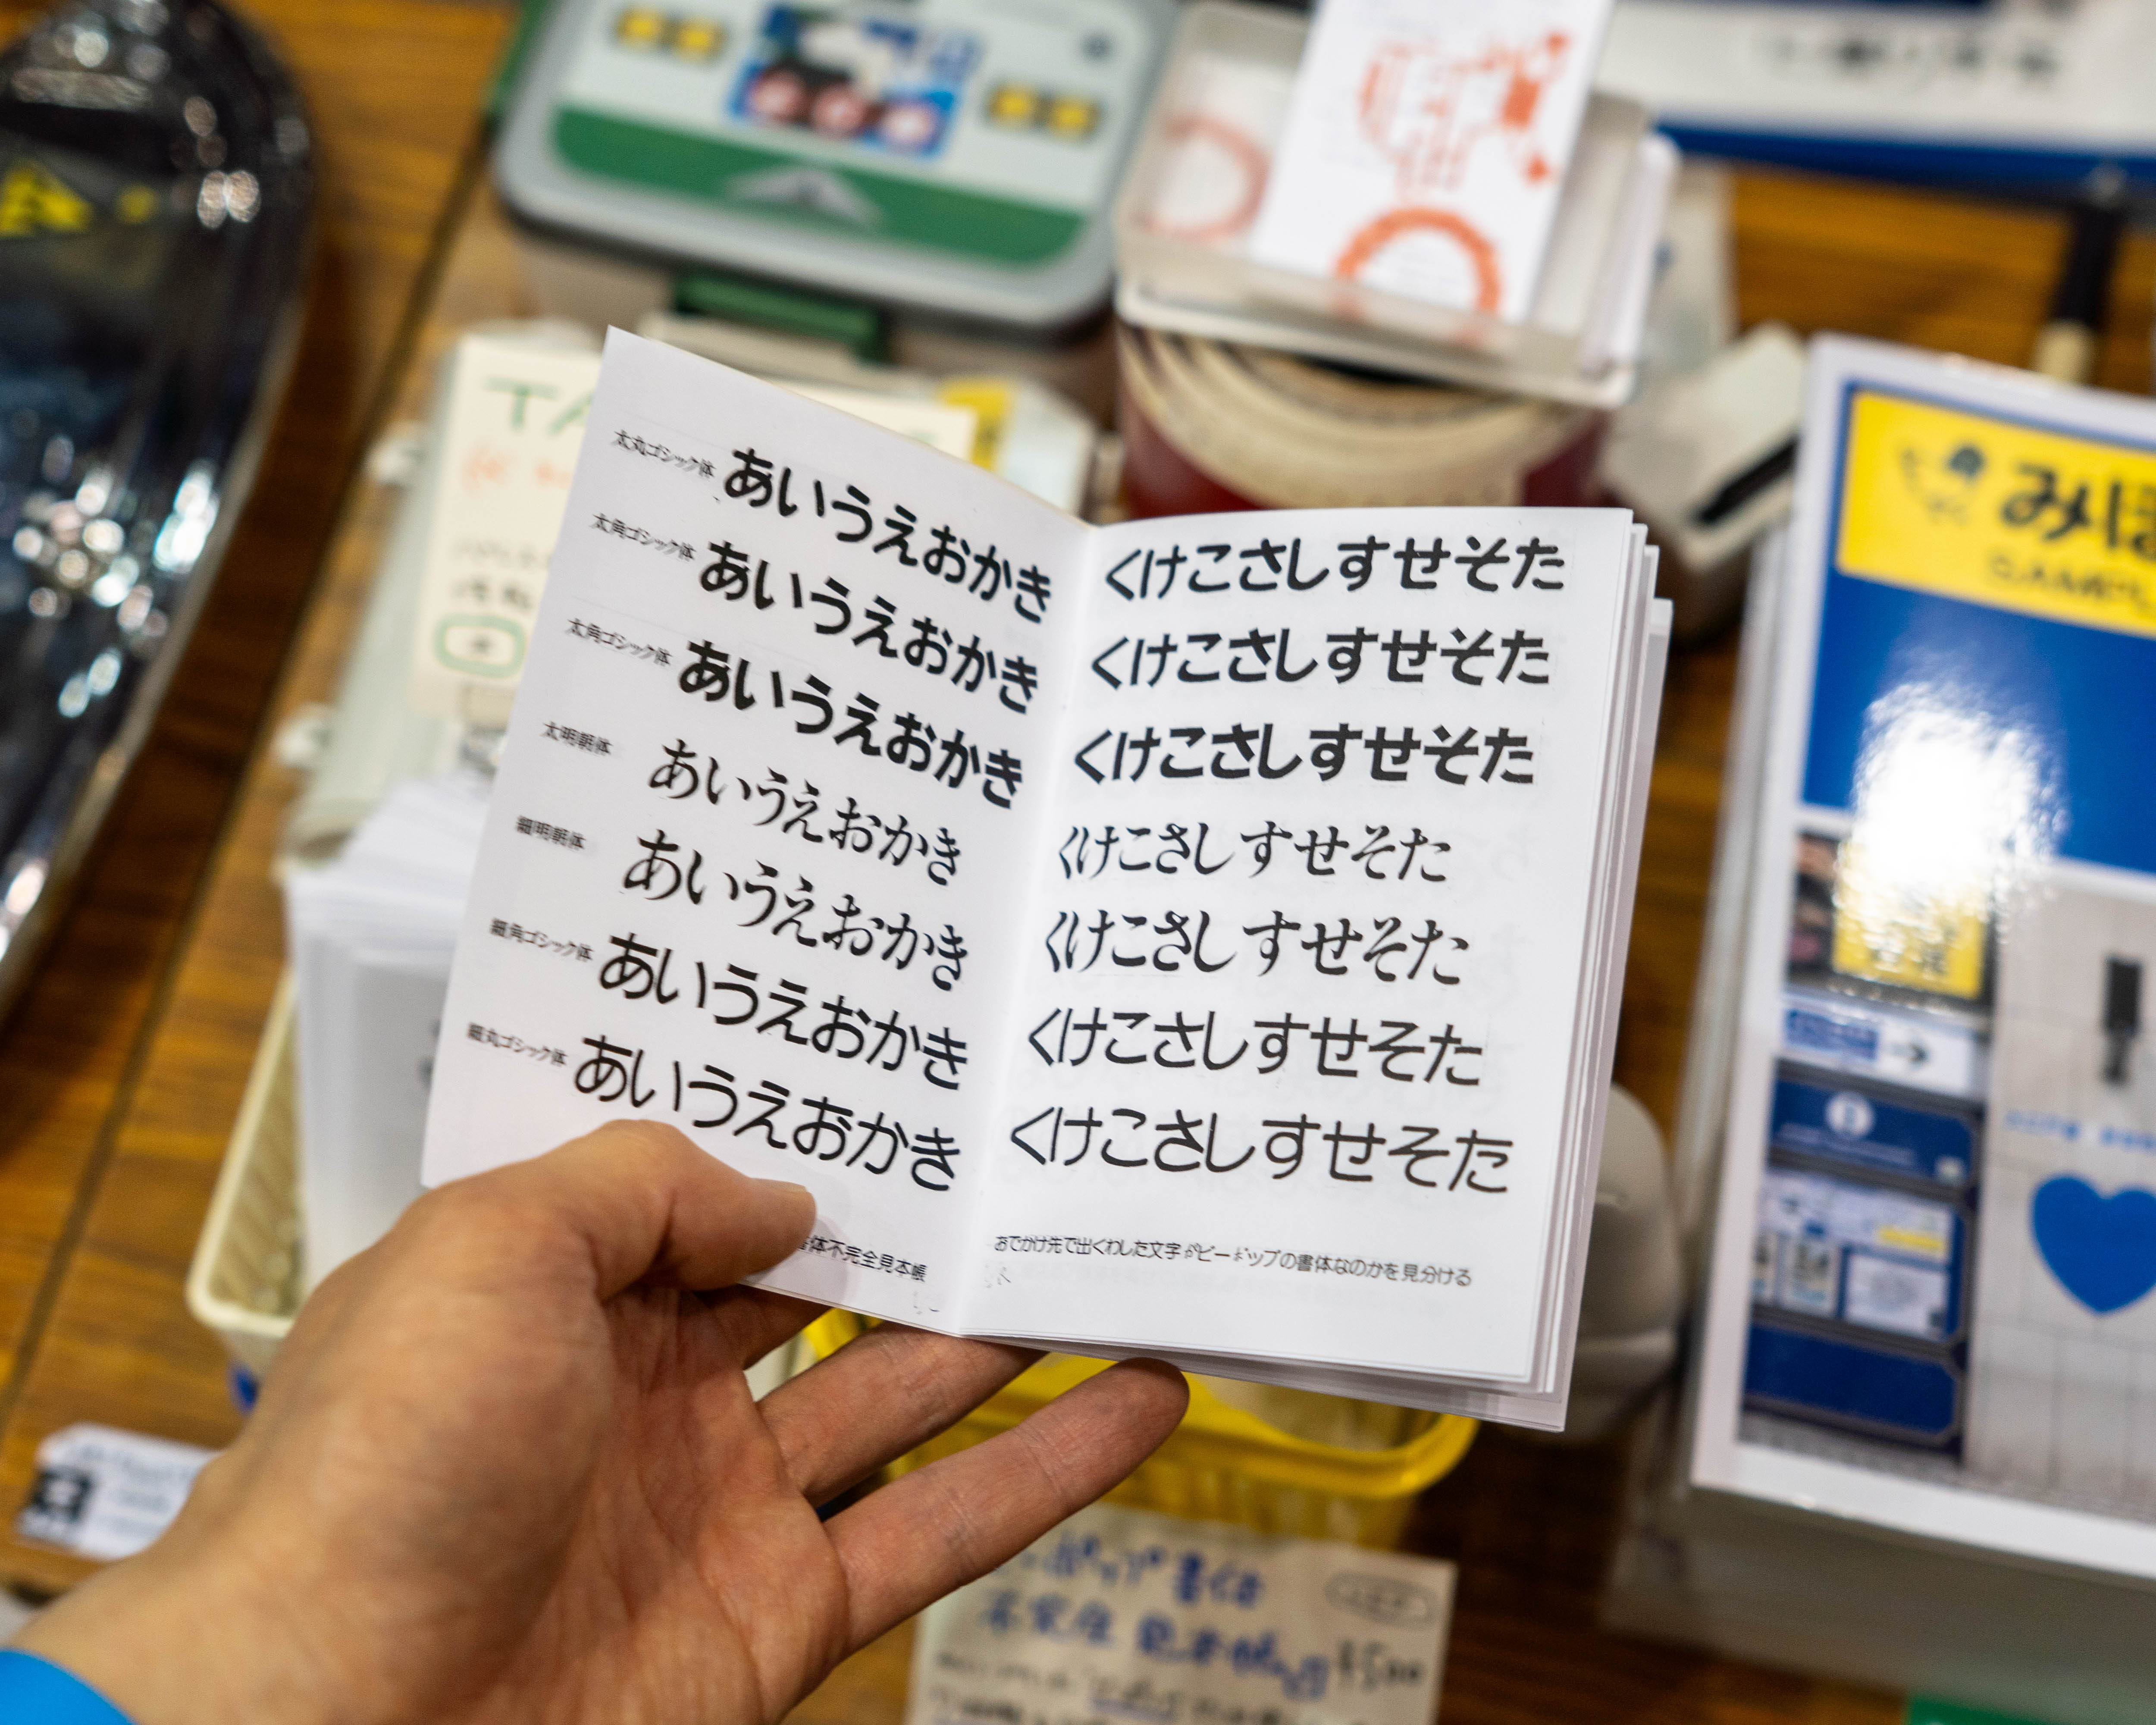 太丸ゴシック体 あいうえおかき くけこさしすせそた
太角ゴシック体 あいうえおかき くけこさしすせそた
太角ゴシック体 あいうえおかき くけこさしすせそた
太明朝体 あいうえおかき くけこさしすせそた
細明朝体 あいうえおかき くけこさしすせそた
細角ゴシック体 あいうえおかき くけこさしすせそた
細丸ゴシック体 あいうえおかき くけこさしすせそた
書体不完全見本帳
おでかけ先で出くわした文字がビーポップの書体なのかを見分ける
TA
不完全 見本帳 ¥500